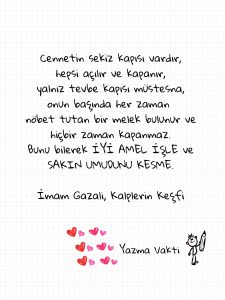 Cennetin sekiz kapısı vardır,
hepsi açılır ve kapanır,
yalnız tevbe kapısı müstesna,
onun başında her zaman
nöbet tutan bir melek bulunur ve
hiçbir zaman kapanmaz.
Bunu bilerek İYİ AMEL İŞLE ve
SAKIN UMUDUNU KESME.
İmam Gazali, Kalplerin Keşfi
Yazma Vakti